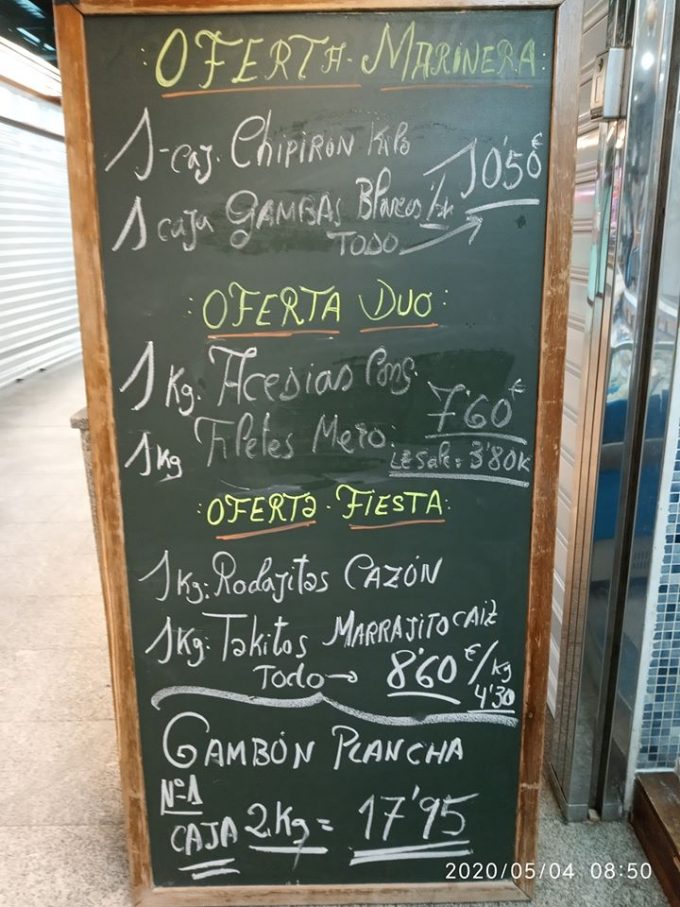 OFERTA MARINERA
1-CAJ. CHIPIRON KILO
10'50€
1 CAJA GAMBAS Blancas 1k
TODO
OFERTA DUO
1 Kg. Acesias Cong.
7'60€
1Kg Filetes Mero:
LE Sale: 3'80K
OFERTA FIESTA
1 Kg: Rodajitas CAZÓN
1Kg: Takitos MARRAJITO CAIZ
Todo → 8'60€/kg
4'30
GAMBÓN PLANCHA
Nº1
CAJA 2Kg = 17'95
2020/05/04 08:50